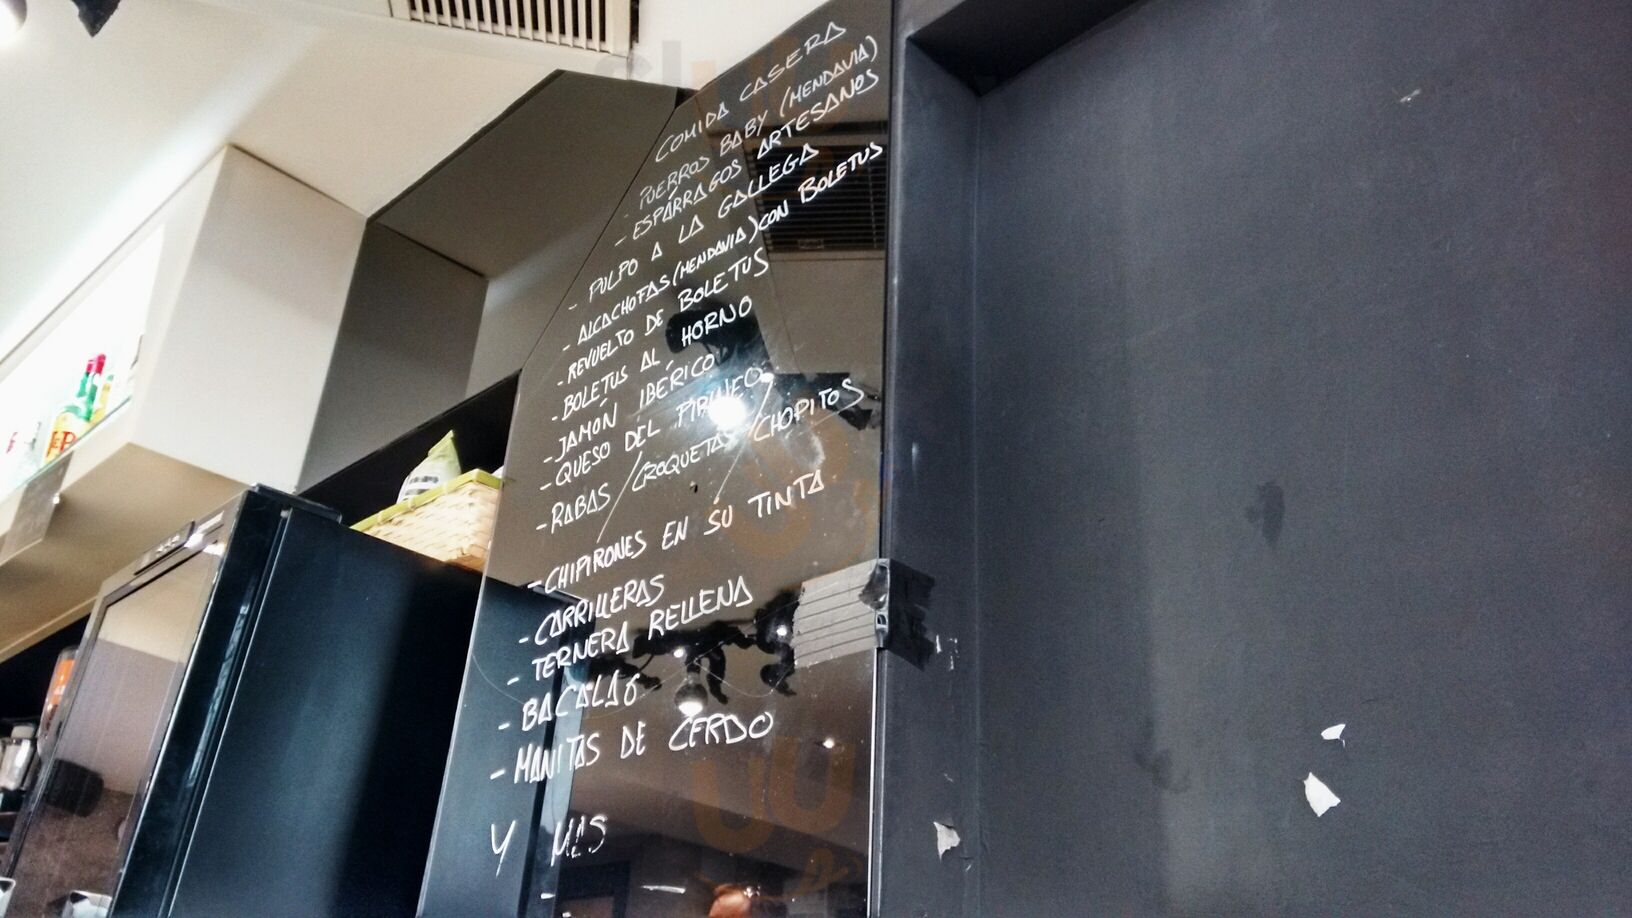 COMIDA CASERA
- PUERROS BABY (MENDAVIA)
- ESPÁRRAGOS ARTESANOS
- PULPO A LA GALLEGA
- ALCACHOFAS (MENDAVIA) CON BOLETUS
- REVUELTO DE BOLETUS
- BOLETUS AL HORNO
- JAMÓN IBÉRICO
- QUESO DEL PIRINEO
- RABAS / CROQUETAS / CHOPITOS
- CHIPIRONES EN SU TINTA
- CARRILLERAS
- TERNERA RELLENA
- BACALAO
- MANITAS DE CERDO
Y MAS